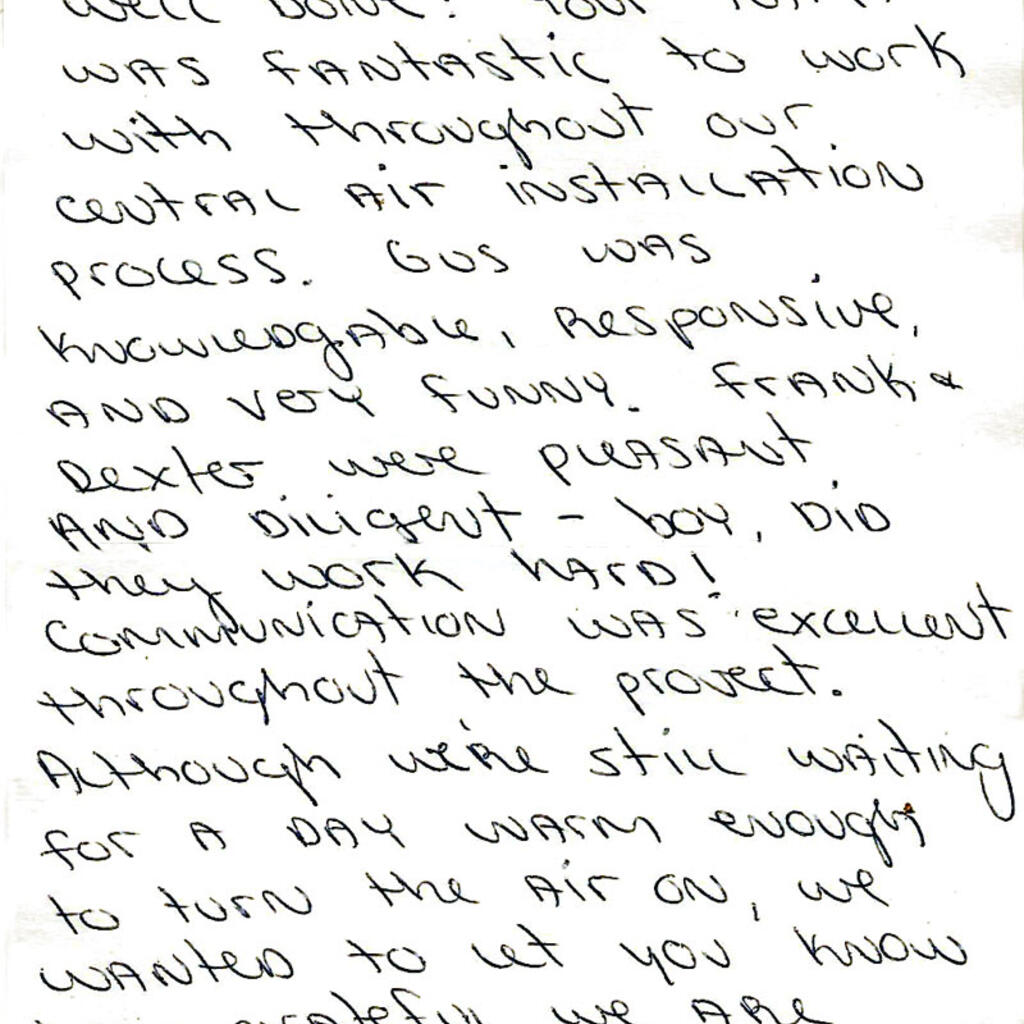 Well Done! Your
was fantastic to work
with throughout our
central air installation
process. Gus was
knowledgable, responsive,
and very funny. Frank &
Dexter were pleasant
and diligent - boy, did
they work hard!
Communication was excellent
throughout the provect.
Although we're still waiting
for a day warm enough
to turn the air on, we
wanted to let you know
grateful we are